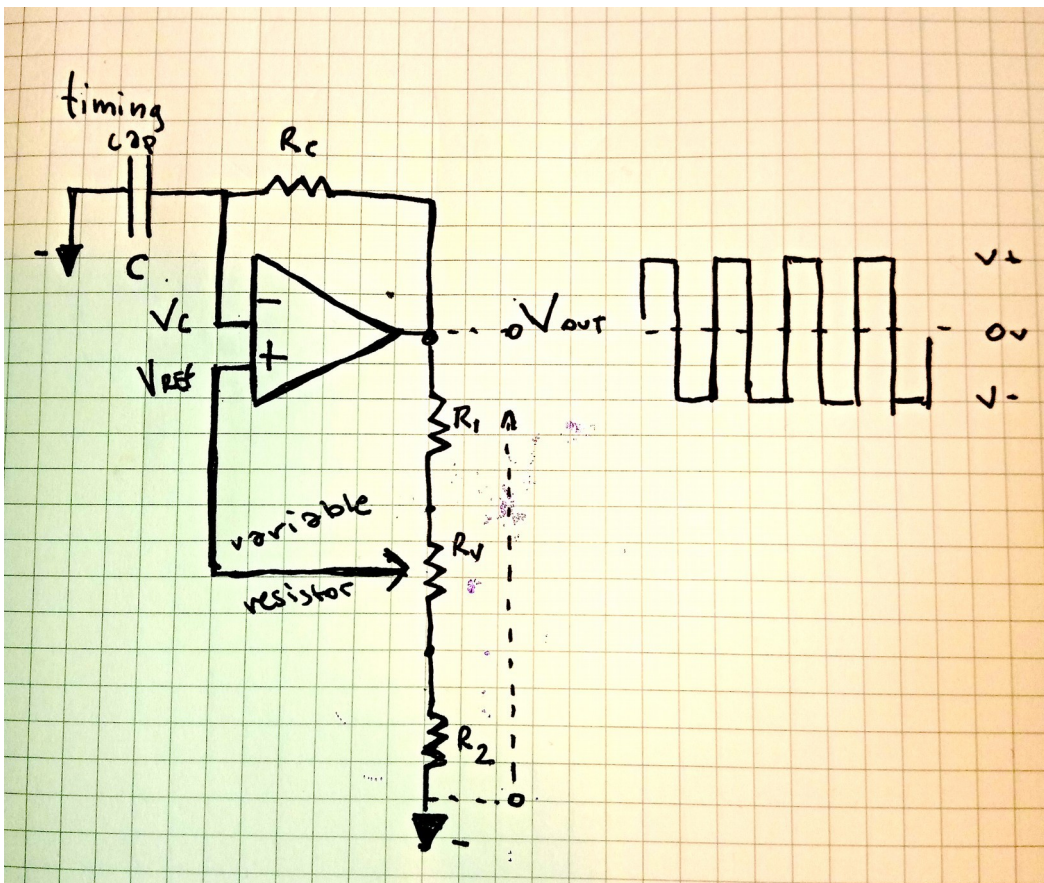 timing
cap
Rc
-
C
Vc
-
+
VREF
VOUT
V+
0v
V-
R1
variable
resistor
RV
R2
-